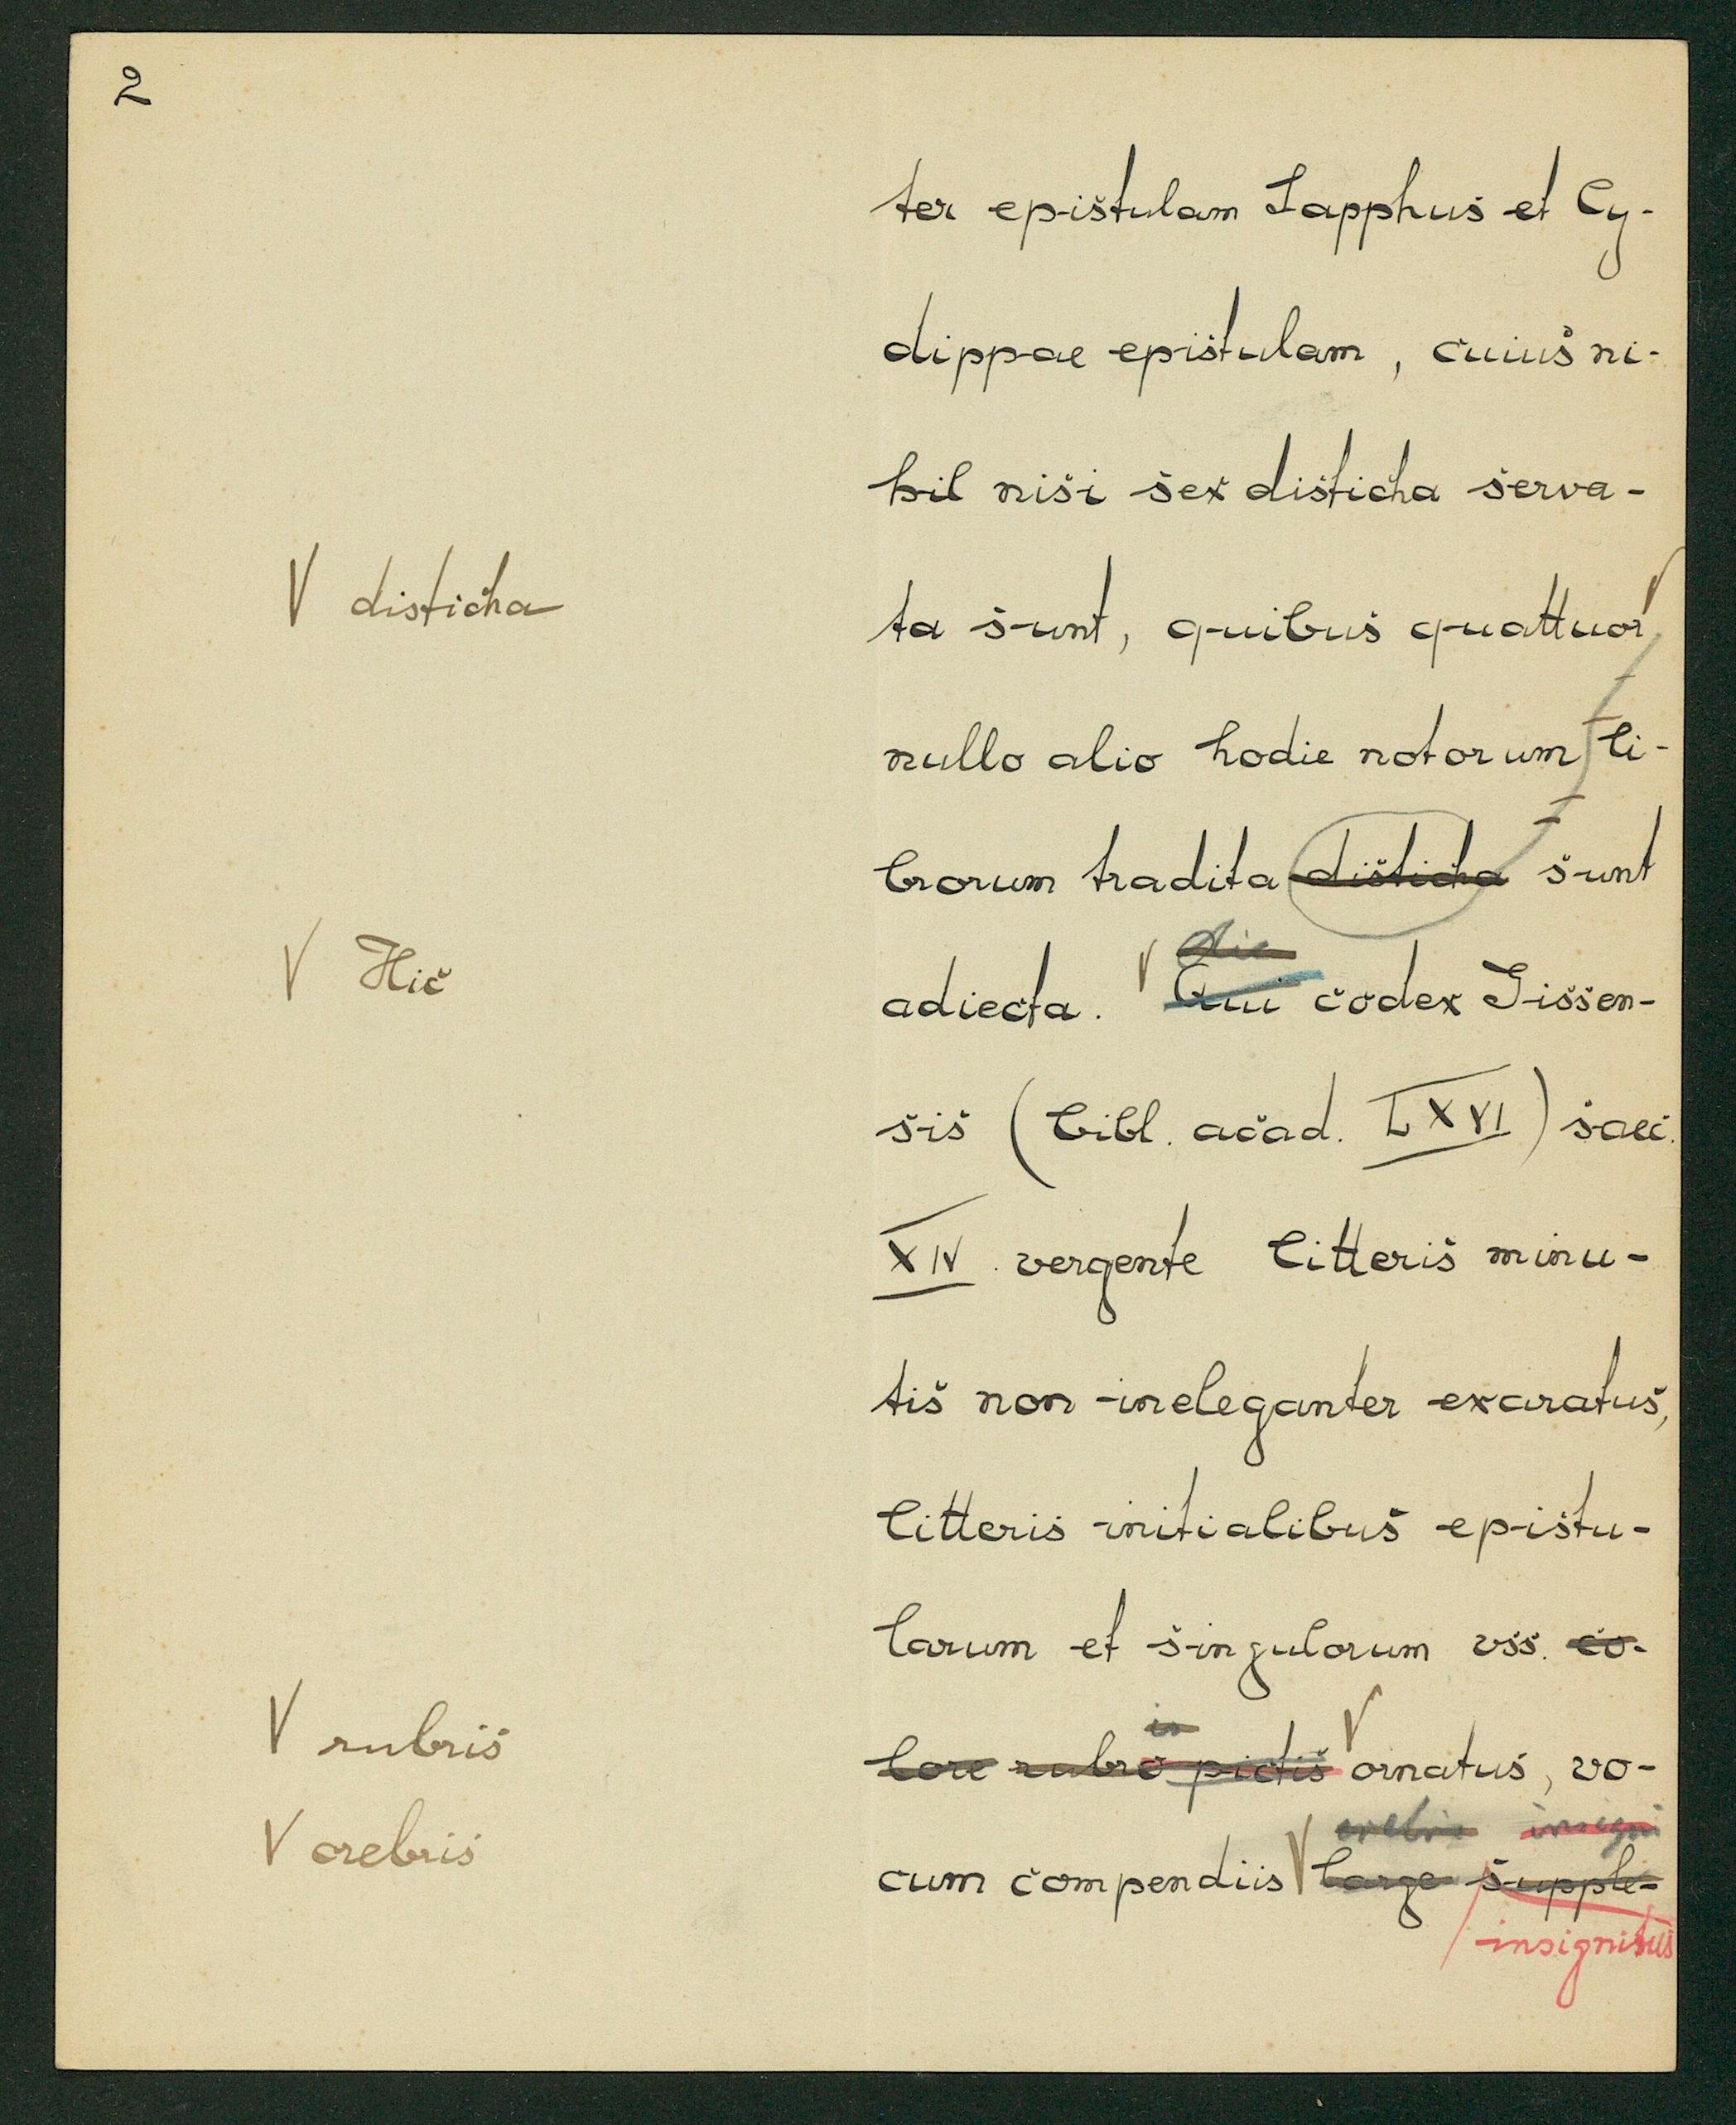 2
ter epistulam Sapphus et Cy-
dippae epistulam, cuius ni-
hil nisi sex disticha serva-
V disticha
ta sunt, quibus quattuor V
nullo alio hodie notorum li-
brorum tradita disticha sunt
V Hic
Hic
adiecta. V Qui codex Gissen-
sis (bibl. acad. LXVI) saec.
XIV. vergente litteris minu-
tis non ineleganter exaratus,
litteris initialibus epistu-
larum et singulorum vss. co-
V rubris
is V
lore rubro pictis ornatus, vo-
V crebris
crebris insigni
cum compendiis V large supple-
insignitus